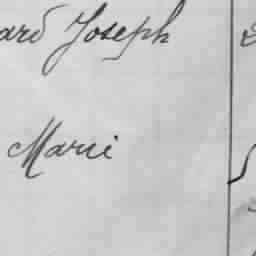 ard Joseph
Marie